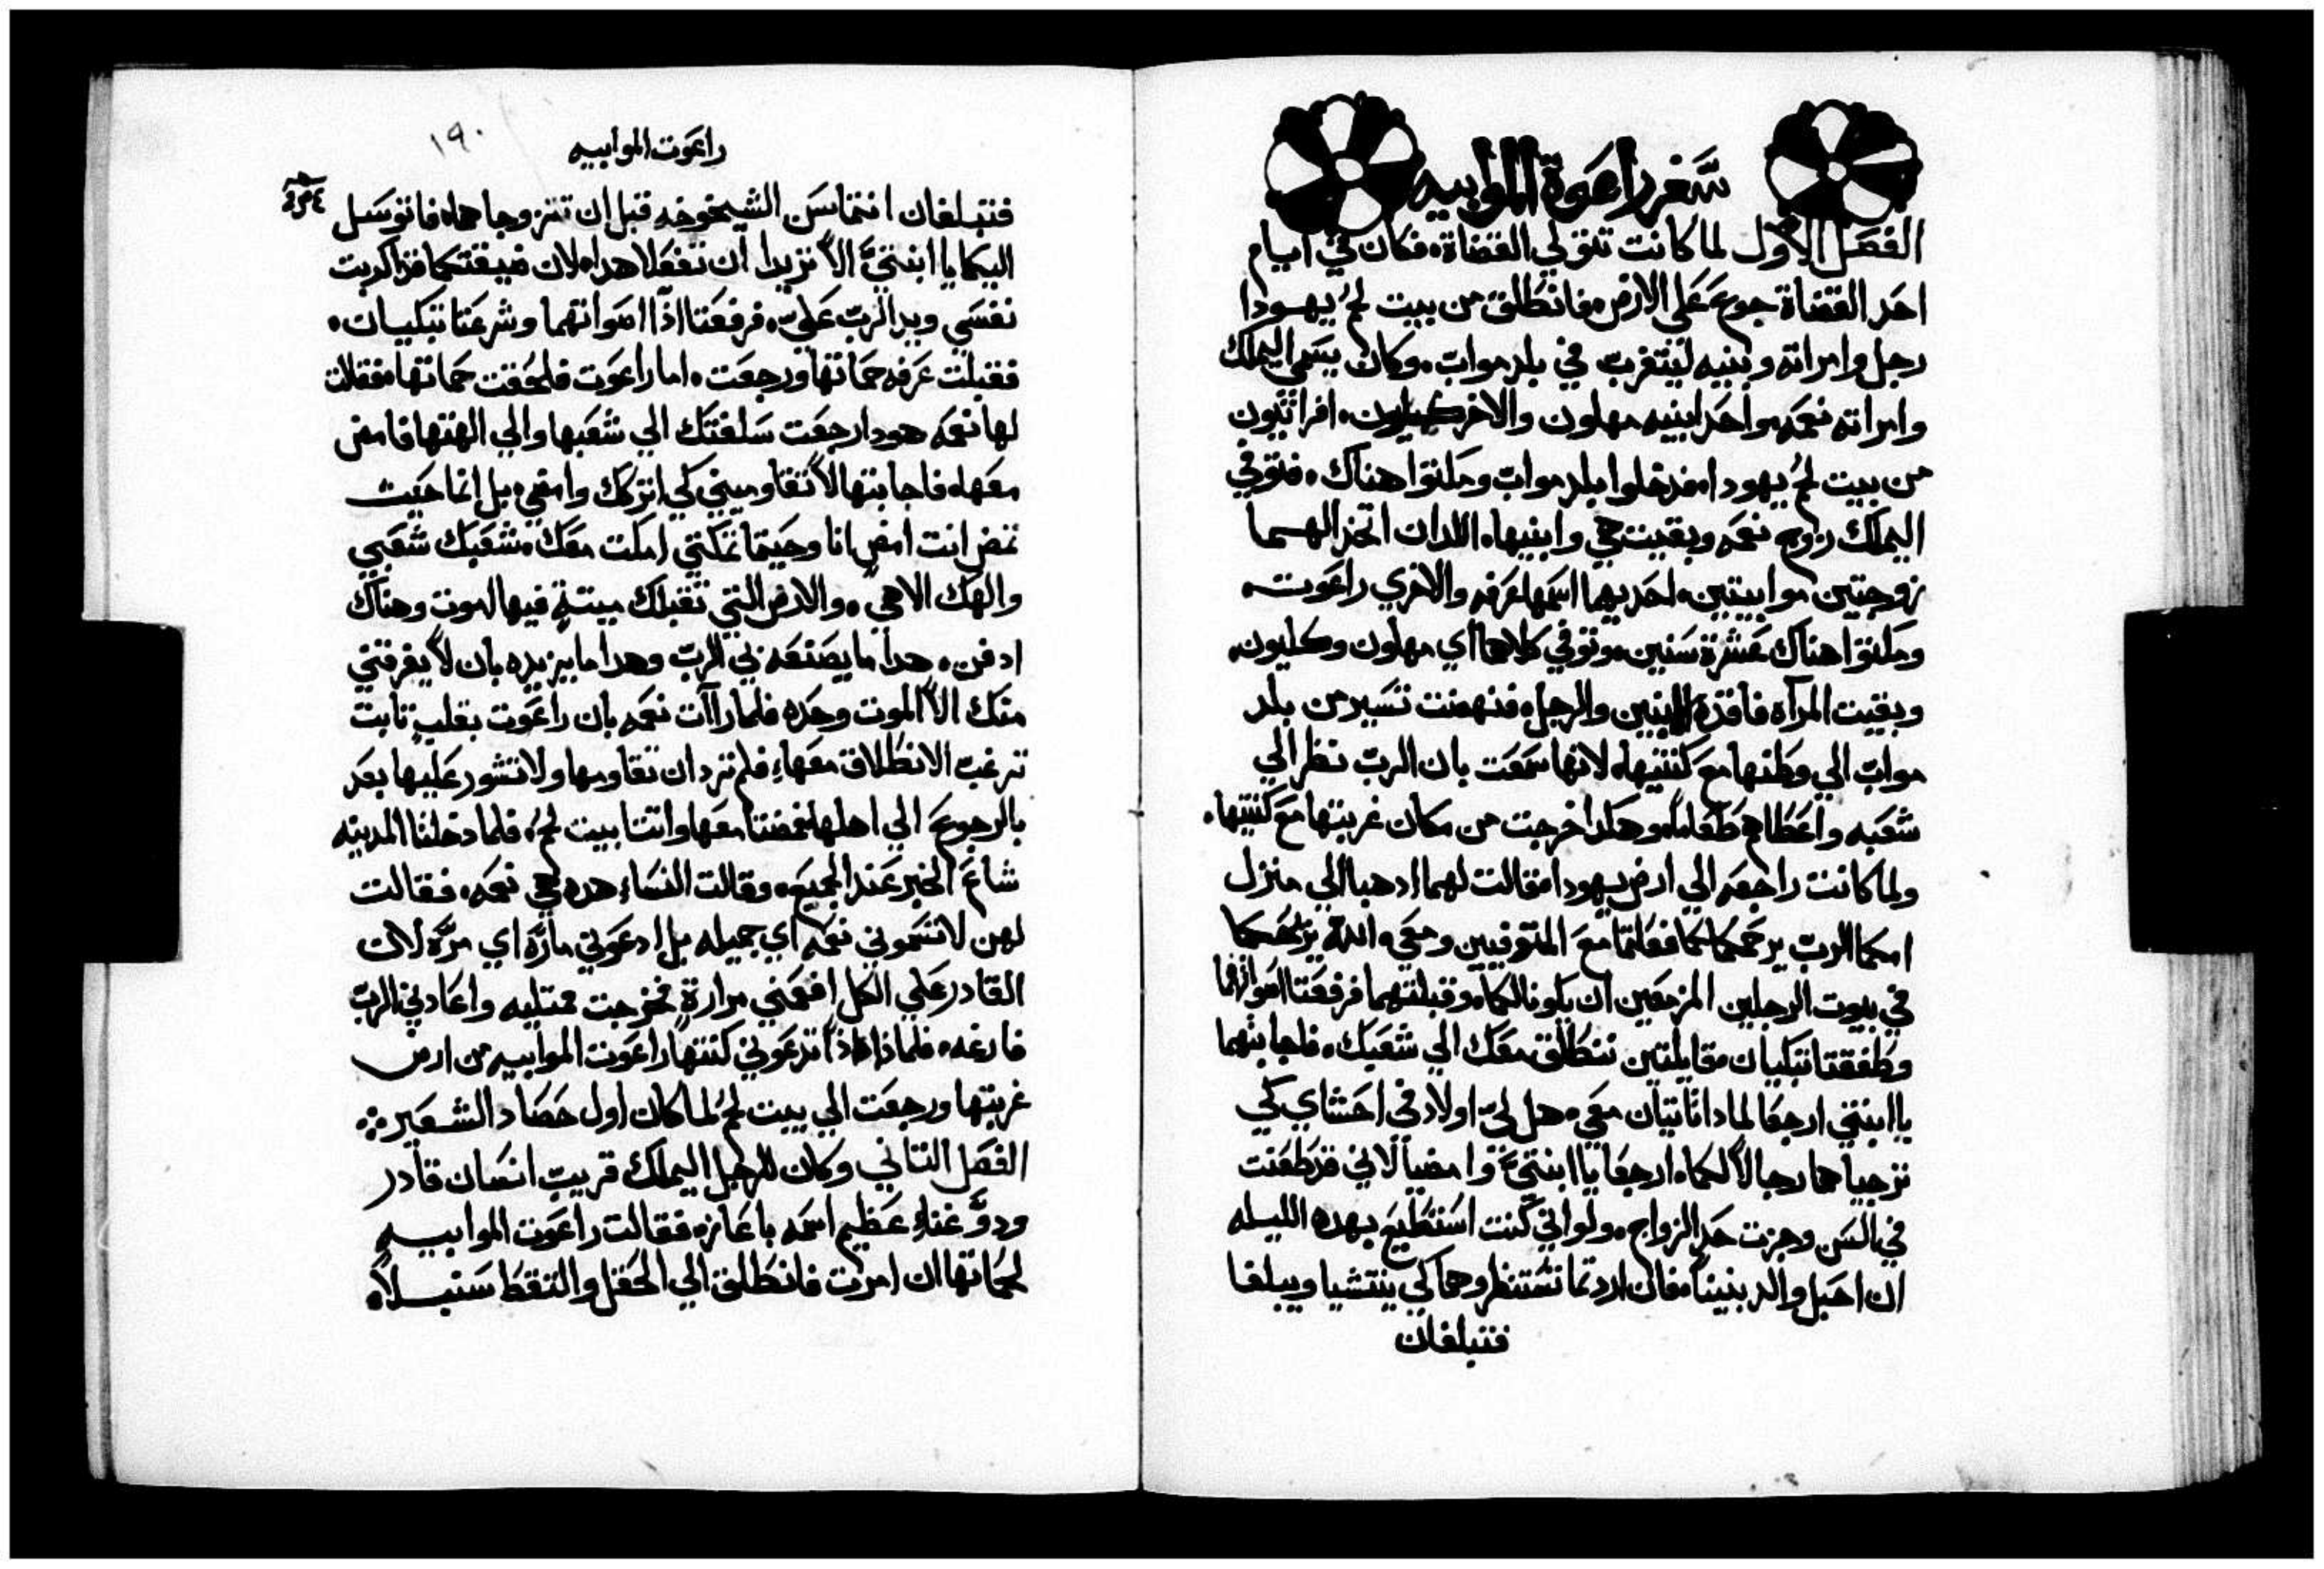 سفر راعوة الموابيه
الفصل الاول لما كانت تتولي القضاة، فكان في ايام
احد القضاة جوع علي الارض، فانطلق من بيت لحم يهودا
رجل وامراته وبنيه ليتغرب في بلد مواب، وكان يسمي اليملك
وامراته نعمه واحد ابنيه مهلون والاخر كيلون، افراتيون
من بيت لحم يهودا، فدخلوا بلد مواب ومكتوا هناك، فتوفي
اليملك زوج نعمه وبقيت هي وابنيها، اللدان اتخدا لهما
زوجتين موابيتين، احديهما اسمها عرفه والاخري راعوت،
ومكتوا هناك عشرة سنين، وتوفي كلاهما اي مهلون وكليون،
وبقيت المرآه فاقدة البنين والرجل، فنهضت تسير من بلد
مواب الي وطنها مع كنتيها، لانها سمعت بان الرب نظر الي
شعبه واعطاهم طعاماً، وهكدا خرجت من مكان غربتها مع كنتيها،
ولما كانت راجعه الي ارض يهودا، فقالت لهما ادهبا الي منزل
امكما الرب يرحمكما كما فعلتما مع المتوفيين ومعي،
في بيوت الرجلين المزمعين ان يكونا لكما، وقبلتهما فرفعتا اصواتهما
وطفقتا تبكيان مقايلتين ننطلق معك الي شعبك، فاجابتهما
يا ابنتي ارجعا لمادا تاتيان معي، هل لي اولاد في احشاي كي
ترجياهما رجالاً لكما، ارجعا يا ابنتيّ وامضيا لاني قد طعنت
في السن وجزت حد الزواج، ولو اني كنت استطيع بهده الليله
ان احبل والد بنينا، فان اردتما تنتظروهما كي ينتشيا ويبلغا
فتبلغان
راعوت الموابيه
١٩٠
فتبلغان انتما سن الشيخوخه قبل ان تتزوجا هما، فاتوسل
اليكما يا ابنتيّ الاّ تريدا ان تفعلا هدا، لان ضيقتكما قد اكربت
نفسي ويد الرب عليّ، فرفعتا اذاً اصواتهما وشرعتا تبكيان،
فقبلت عرفه حماتها ورجعت، اما راعوت فلحقت حماتها، فقالت
لها نعمه هودا رجعت سلفتك الي شعبها والي الهتها فامض
معها، فاجابتها لا تقاوميني كي اتركك وامضي، بل انما حيت
تمض انت امض انا وحيتما تمكتي امكت معك، شعبك شعبي
والهك الاهي، والارض التي تقبلك ميتةٍ فيها اموت وهناك
ادفن، هدا ما يصنعه بي الرب وهدا ما يزيده بان لا يفرقني
منك الاّ الموت وحده فلما راآت نعمه بان راعوت بقلبٍ تابت
ترغب الانطلاق معها، فلم ترد ان تقاومها ولا تشور عليها بعد
بالرجوع الي اهلها، فمضتا معها واتتا بيت لحم، فلما دخلتا المدينه
شاع الخبر عند الجميع، وقالت النساء هده هي نعمه، فقالت
لهن لا تسموني نعمه اي جميله بل ادعوني مارّه اي مرّه لان
القادر علي الكل افعمني مرارةٍ فخرجت ممتليه واعادني الرب
فارغه، فلماذا تدعوني كنتها راعوت الموابيه من ارض
غربتها ورجعت الي بيت لحم لما كان اول حصاد الشعير
الفصل التاني وكان للرجل اليملك قريب انسان قادر
ودو غناءٍ عظيم اسمه باعاز، فقالت راعوت الموابيه
لحماتها ان امرت فانطلق الي الحقل والتقط سنبلاً،